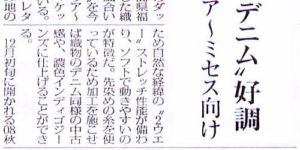 デニム〟好調
ア〜ミセス向け
ダッ
県福
た織
を今
ケッ
地の
ため自然な経緯の〝2ウエ
ー〟ストレッチ性能が備わ
り、ソフトで動きやすいの
が特徴だ。先染めの糸を使
っているため加工を施こせ
ば織物のデニム同様の中古
感や、濃色インディゴジー
ンズに仕上げることができ
る。
12月初旬に開かれる08秋